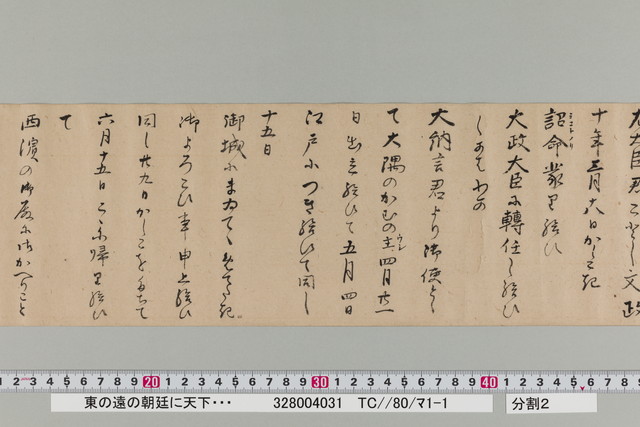 右大臣君ことし文政
十年三月十八日かしこき
詔命蒙り給ひ
ミコトノリ
太政大臣に轉任し給ひ
しあはれの
大納言君より御使として
て大隅のかむの主四月廿一
ヌシ
日出立給ひて五月四日
江戸につき給ひて同し
十五日
御城にまゐて
御よろこひ事申上給ひ
同し廿九日かしこをたちて
六月十五日こゝに帰り給ひ
て
西濱の御殿に御かへりこと
東の遠の朝廷に天下・・・ 328004031 TC//80/ﾏ1-1 分割2